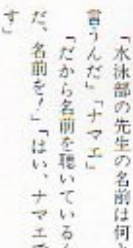 「水泳部の先生の名前は何
言うんだ」「ナマエ」
「だから名前を聴いているん
だ、名前を！」「はい、ナマエで
す」